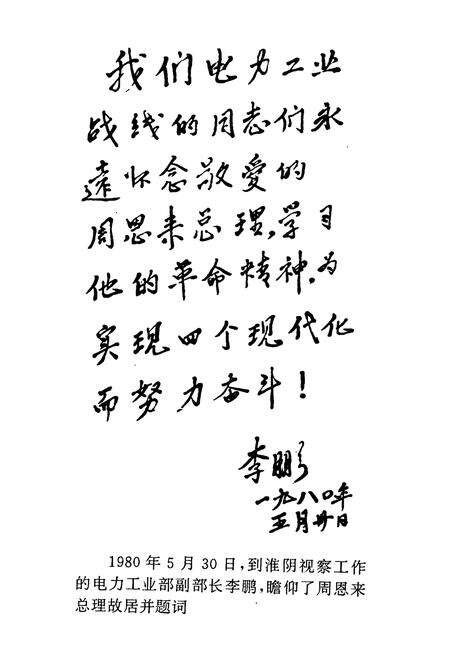 我们电力工业
战线的同志们永
遠怀念敬爱的
周恩来总理,学习
他的革命精神,为
实现四个现代化
而努力奋斗!
李鹏
一九八〇年
五月卅日
1980年5月30日,到淮阴视察工作
的电力工业部副部长李鹏,瞻仰了周恩来
总理故居并题词